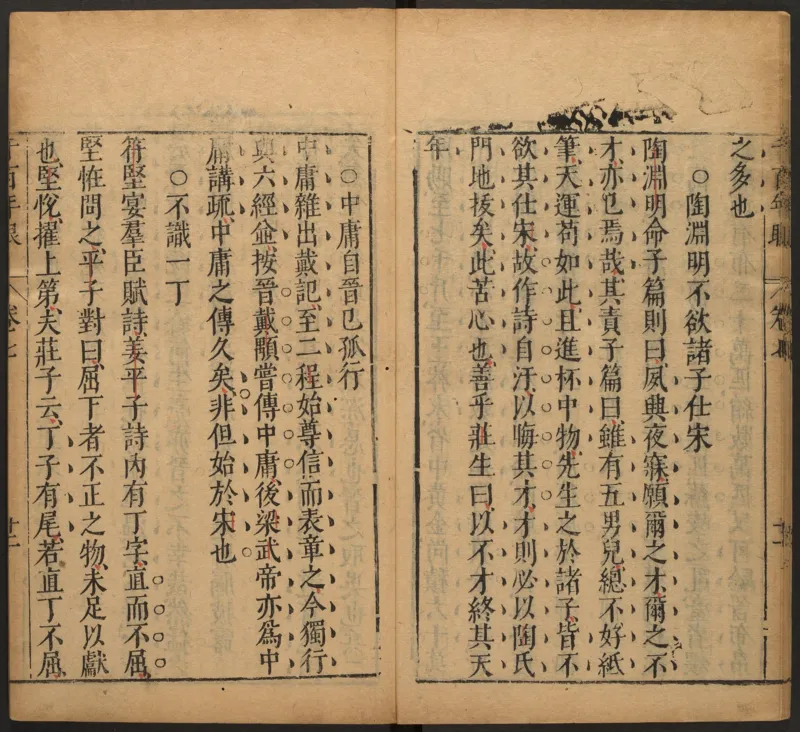 之多也
○陶淵明不欲諸子仕宋
陶淵明命子篇則曰夙興夜寐願爾之才爾之不
才亦已焉哉其責子篇曰雖有五男兒總不好紙
筆天運苟如此且進杯中物先生之於諸子皆不
欲其仕宋故作詩自汙以晦其才才則必以陶氏
門地拔矣此苦心也善乎莊生曰以不才終其天
年
○中庸自晉已孤行
中庸雜出戴記至二程始尊信而表章之今獨行
與六經並按晉戴顒嘗傳中庸後梁武帝亦爲中
庸講疏中庸之傳久矣非但始於宋也
○不識一丁
符堅宴羣臣賦詩姜平子詩內有丁字直而不屈
堅怪問之平子對曰屈下者不正之物未足以獻
也堅悅擢上第夫莊子云丁子有尾若直丁不屈
千百年眼
卷七